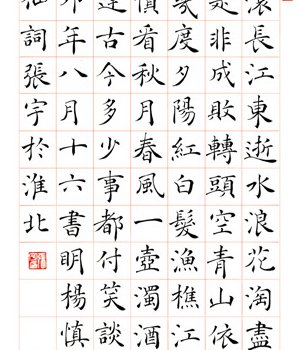 滾長江東逝水浪花淘盡
是非成敗轉頭空青山依
幾度夕陽紅白髮漁樵江
慣看秋月春風一壺濁酒
逢古今多少事都付笑談
年八月十六書明楊慎
仙詞張宇於淮北